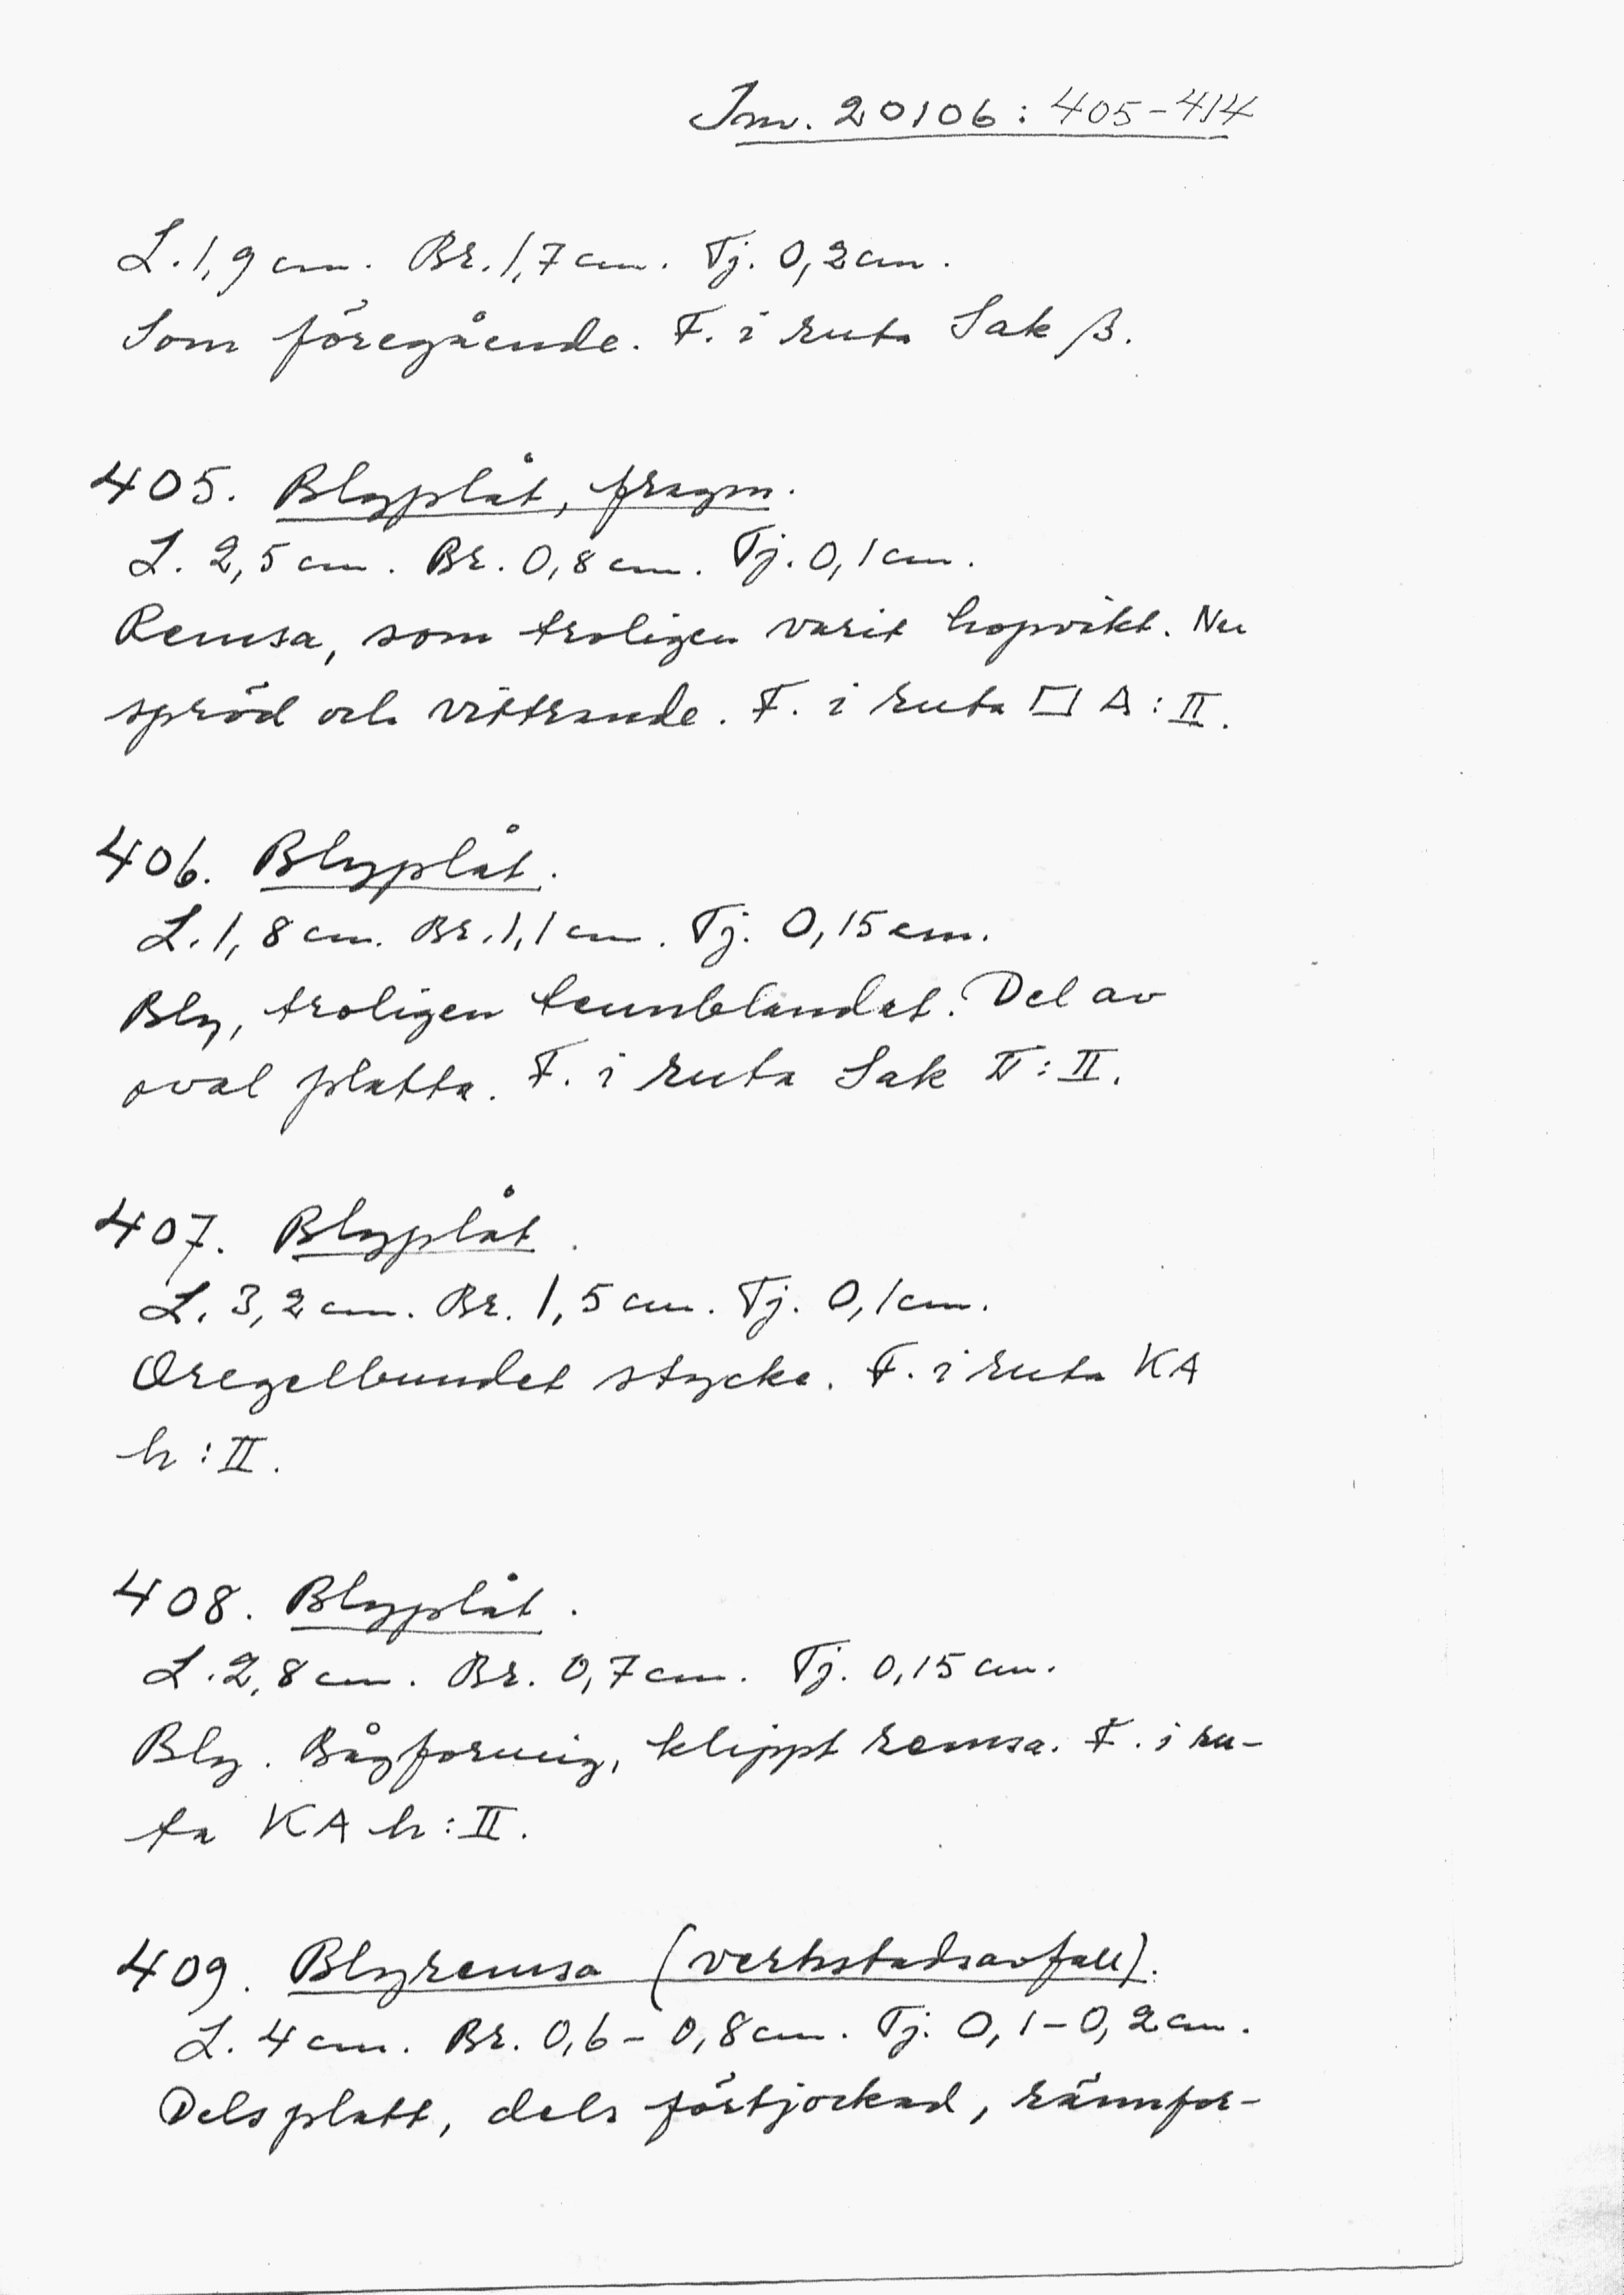 Inv. 20106: 405-414
L. 1,9 cm. Br. 1,7 cm. Tj. 0,2 cm.
Som föregående. F. i ruta Sak β.
405. Blyplåt, fragm.
L. 2,5 cm. Br. 0,8 cm. Tj. 0,1 cm.
Remsa, som troligen varit hopvikt. Nu
spröd och vittrande. F. i ruta □ A: II.
406. Blyplåt.
L. 1,8 cm. Br. 1,1 cm. Tj. 0,15 cm.
Bly, troligen tennblandat. Del av
oval platta. F. i ruta Sak : II.
407. Blyplåt.
L. 3,2 cm. Br. 1,5 cm. Tj. 0,1 cm.
Oregelbundet stycke. F. i ruta KA
h: II.
408. Blyplåt.
L. 2,8 cm. Br. 0,7 cm. Tj. 0,15 cm.
Bly. Bågformig, klippt remsa. F. i ru-
ta KA h: II.
409. Blyremsa (verkstadsavfall).
L. 4 cm. Br. 0,6-0,8 cm. Tj. 0,1-0,2 cm.
Dels platt, dels förtjockad, rännfor-